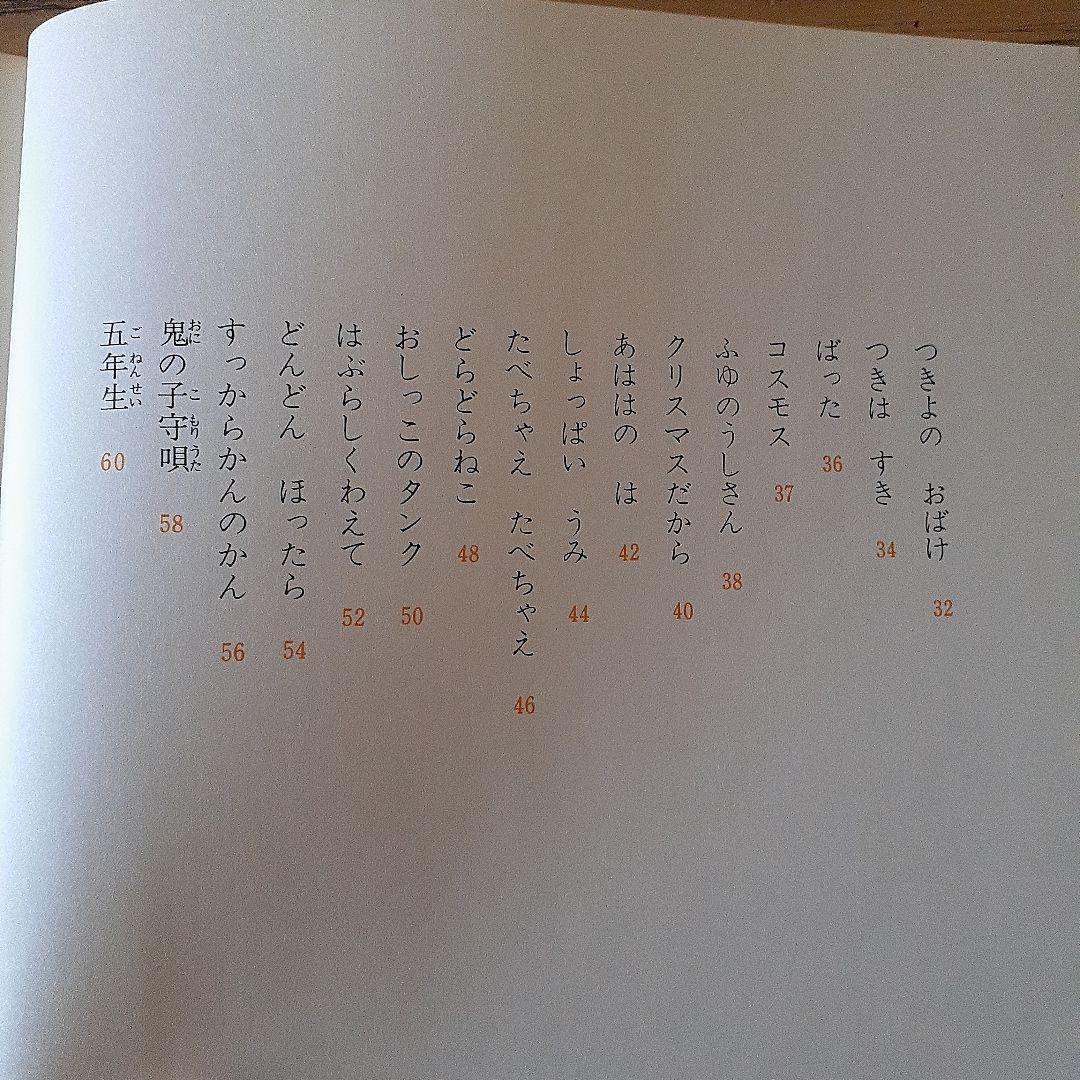 つきよの おばけ 32
つきは すき 34
ばった 36
コスモス 37
ふゆのうしさん 38
クリスマスだから 40
あははの は 42
しょっぱい うみ 44
たべちゃえ たべちゃえ 46
どらどらねこ 48
おしっこのタンク 50
はぶらしくわえて 52
どんどん ほったら 54
すっからかんのかん 56
鬼の子守唄 58
おに こ もりうた
五年生 60
ご ねん せい